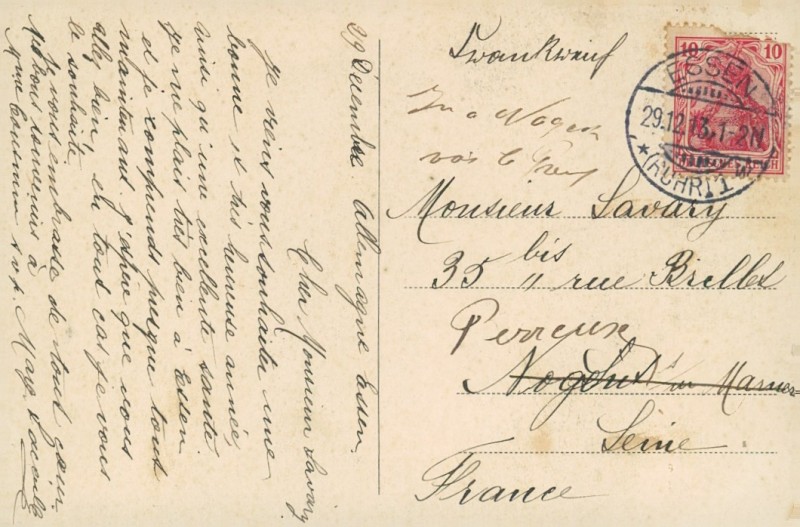 29 Décembre Allemagne Essen.
Cher Monsieur Savary
Je viens vous souhaiter une
bonne et très heureuse année,
ainsi qu'une excellente santé
je me plais très bien à Essen
et je comprends presque tout
maintenant. J'espère que vous
allez bien, en tout cas je vous
le souhaite.
Je vous embrasse de tout cœur.
Mes bons souvenirs à
Mme s.v.p. Marg.
Frankreich
10 10
ESSEN
29.12.13.1-2N
(RUHR) 1
Nogent
voir le
Monsieur Savary
35 bis rue Brillet
Perreux
Nogent s/ Marne
Seine
France